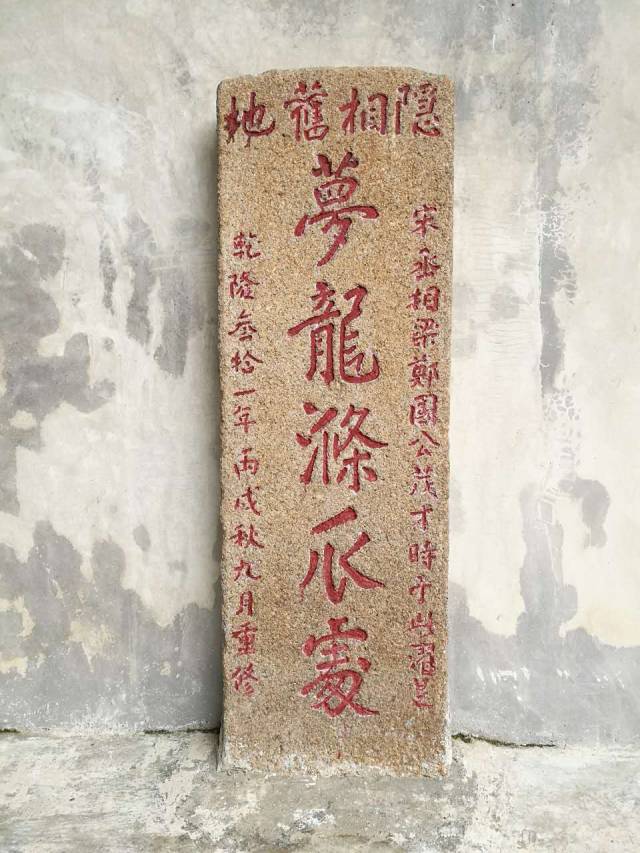 隱相舊地
宋丞相梁鄭國公茂才時于此濯足
夢龍滌爪處
乾隆叁拾一年丙戌秋九月重修